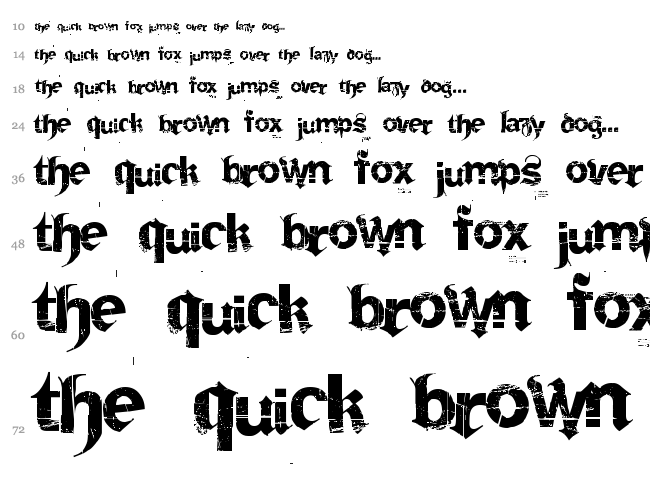 10 the quick brown fox jumps over the lazy dog...
14 the quick brown fox jumps over the lazy dog...
18 the quick brown fox jumps over the lazy dog...
24 the quick brown fox jumps over the lazy dog...
36 the quick brown fox jumps over
48 the quick brown fox jump
60 the quick brown fox
72 the quick brown